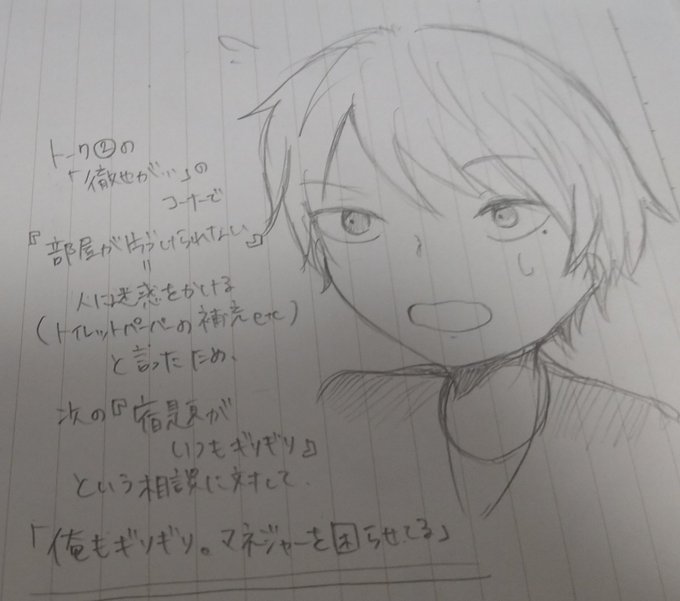 トーク②の
「徹也が…」の
コーナーで
『部屋が片づけられない』
=
人に迷惑をかける
(トイレットペーパーの補充etc)
と言ったため、
次の『宿題が
いつもギリギリ』
という相談に対して、
「俺もギリギリ。マネジャーを困らせてる」